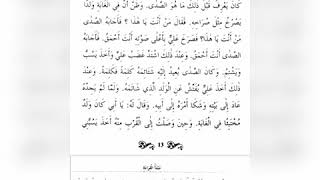 كَانَ يَعْرِفُ قَبْلَ ذٰلِكَ مَا هُوَ الصَّدَى. وَظَنَّ أَنَّ فِي الْغَابَةِ وَلَدًا
يَصْرُخُ مِثْلَ صُرَاخِهِ. فَقَالَ مَنْ أَنْتَ يَا هٰذَا؟ فَأَجَابَهُ الصَّدَى
مَنْ أَنْتَ يَا هٰذَا؟ فَصَرَخَ عَلِيٌّ بِأَعْلَى صَوْتِهِ أَنْتَ أَحْمَقُ. فَأَجَابَهُ
الصَّدَى أَنْتَ أَحْمَقُ. وَعِنْدَ ذٰلِكَ اشْتَدَّ غَضَبُ عَلِيٍّ وَأَخَذَ يَسُبُّ
وَيَشْتِمُ. وَكَانَ الصَّدَى يُعِيدُ إِلَيْهِ شَتَائِمَهُ كَلِمَةً فَكَلِمَةً. وَعِنْدَ
ذٰلِكَ أَخَذَ عَلِيٌّ يُفَتِّشُ عَنِ الْوَلَدِ الَّذِي شَاتَمَهُ. وَلَمَّا لَمْ يَجِدْهُ
عَادَ إِلَى بَيْتِهِ وَشَكَا أَمْرَهُ إِلَى أَبِيهِ. وَقَالَ لَهُ: يَا أَبِي كَانَ وَلَدٌ
مُخْتَبِئًا فِي الْغَابَةِ. وَحِينَ وَصَلْتُ إِلَى الْقُرْبِ مِنْهُ أَخَذَ يَسُبُّنِي
13